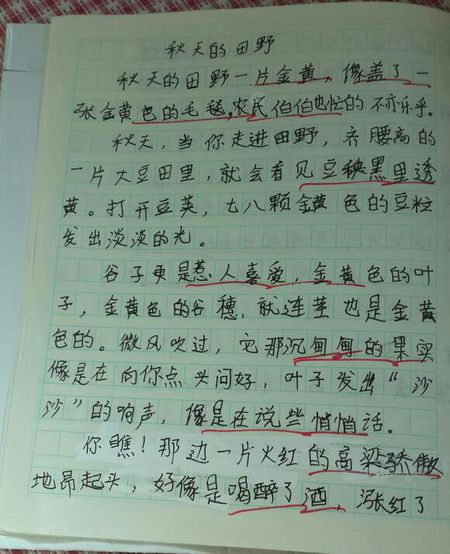 秋天的田野
秋天的田野一片金黄，像盖了一
张金黄色的毛毯,农民伯伯也忙的不亦乐乎。
秋天，当你走进田野，齐腰高的
一片大豆田里，就会看见豆秧黑里透
黄。打开豆荚，七八颗金黄色的豆粒
发出淡淡的光。
谷子更是惹人喜爱，金黄色的叶
子，金黄色的谷穗，就连茎也是金黄
色的。微风吹过，它那沉甸甸的果实
像是在向你点头问好，叶子发出“沙
沙”的响声，像是在说些悄悄话。
你瞧！那边一片火红的高粱骄傲
地昂起头，好像是喝醉了酒，涨红了